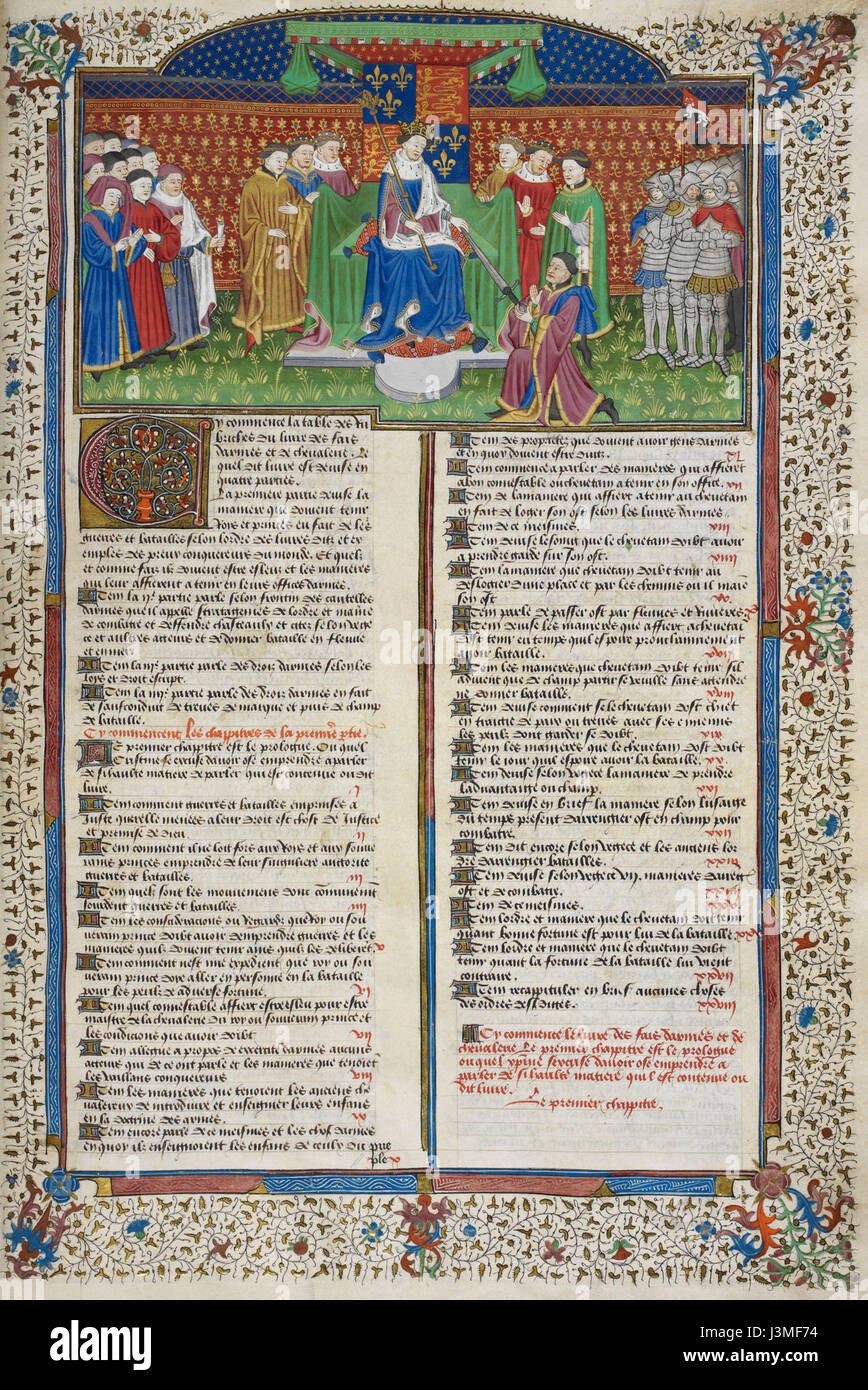 Cy commence la table des Ru
briches du livre des fais
darmes et de chevalerie. Le
quel dit livre est devise en
quatre parties.
La premiere partie devise la
maniere que doivent tenir
Roys et princes en fait de les
guerres et batailles selon lordre des livres ditz et ex
emples des preux conquereurs du monde. Et quelz
et comme faiz ilz doivent estre esleuz et les manieres
quilz leur affierent a tenir en leurs offices darmes.
Item la ije partie parle selon frontin des cautelles
darmes que il appelle stratagemes de lordre et maniere
de combatre et deffendre chasteaulx et citez selon vege
ce et aultres acteurs et de donner bataille en fleuve
et en mer.
Item la iije partie parle des droiz darmes selon les
loys et droit escript.
Item la iiije partie parle des droiz darmes en fait
de saufconduit de treves de marque et puis de champ
de bataille.
Cy commencent les chappitres de la premiere partie.
Le premier chapitre est le prologue. Ou quel
Cristine se excuse davoir ose emprendre a parler
de si haulte matiere de parler qui est contenue ou dit
livre. j
Item comment guerres et batailles emprises a
juste querelle menees a leur droit est chose de Justice
et permise de dieu. ij
Item comment il ne loit fors aux Roys et aux souve
rains princes emprendre de leur singuliere auctorite
guerres et batailles. iij
Item quelz sont les mouvemens dont communement
sourdent guerres et batailles. iiij
Item les consideracions ou Regardz que Roy ou sou
verain prince doibt avoir demprendre guerres et les
manieres quilz doivent tenir ains quilz les delibere. v
Item comment nest mie expedient que roy ou sou
verain prince voye aller en personne en la bataille
pour les perilz de adverse fortune. vi
Item quel connestable affiert estre esleu pour estre
maistre de la chevalerie du roy ou souverain prince et
les condicions que avoir doibt. vii
Item allegue a propos de exercite darmes aucuns
acteurs qui de ce ont parle et les manieres que tenoient
les vaillans conquereurs. viii
Item les manieres que tenoient les anciens che
valereux de introduire et enseigner leurs enfans
en la doctrine des armes. ix
Item encore parle de ce meismes et les choses darmes
en quoy ilz enseignoient les enfans de ceulx du pue
ple. x
Item des proprietez que doivent avoir gens darmes
et en quoy doivent estre duitz. xi
Item commence a parler des manieres qui affierent
a bon connestable ou chevetain a tenir en son office. xii
Item de la maniere qui affiert a tenir au chevetain
en fait de logier son ost selon les livres darmes.
Item de ce meismes. xiii
Item devise le soing que le chevetain doibt avoir
a prendre garde sur son ost. xiiii
Item la maniere que chevetain doibt tenir au
deslogier dune place et par les chemins ou il maine
son ost xv
Item parle de passer ost par fleuves et rivieres. xvi
Item devise les manieres que affiert a chevetain
dost tenir en temps quil espoire prouchainnement
avoir bataille. xvii
Item les manieres que chevetain doibt tenir sil
advient que de champ partir se vueille sans attendre
ne donner bataille. xviii
Item devise comment se le chevetain dost chiet
en traictie de paix ou treves avec ses ennemis
les perilz dont garder se doibt. xix
Item les manieres que le chevetain dost doibt
tenir le jour que espoire avoir la bataille. xx.
Item devise selon vegece la maniere de prendre
ladvantaige ou champ. xxi
Item devise en brief la maniere selon lusaige
du temps present darrengier ost en champ pour
combatre. xxii
Item dit encore selon vegece et les anciens lor
dre darrengier batailles. xxiii
Item devise selon vegece vii. manieres darrengier
ost et de combatre. xxiiii
Item de ce meismes. xxv
Item lordre et maniere que le chevetain doibt tenir
quant bonne fortune est pour lui de la bataille xxvi
Item lordre et maniere que le chevetain doibt
tenir quant la fortune de la bataille lui vient
contraire. xxvii
Item recapituler en brief aucunes choses
des ordres desusdites. xxviii
Cy commence le livre des fais darmes et de
chevalerie. Le premier chappitre est le prologue
ou quel xpine se excuse davoir ose emprendre a
parler de si haulte matiere quil est contenue ou
dit livre.
Le premier chappitre.
alamy
Image ID: J3MF74
www.alamy.com